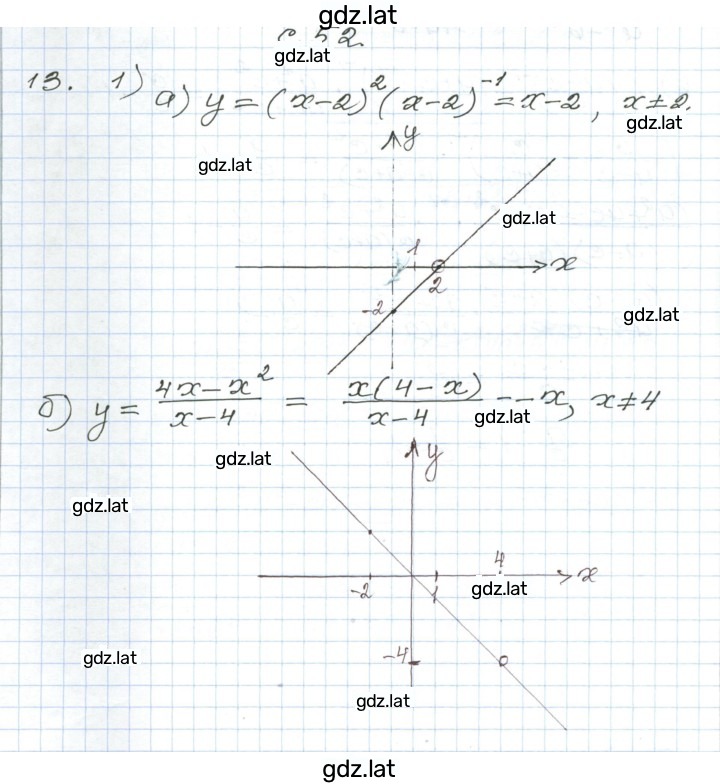 gdz.lat
с 52.
gdz.lat
13. 1) а) y = (x-2)²(x-2)⁻¹ = x-2, x≠2.
gdz.lat
y
gdz.lat
gdz.lat
1
x
2
-2
gdz.lat
б) y = (4x-x²)/(x-4) = x(4-x)/(x-4) = -x, x≠4
gdz.lat
y
gdz.lat
gdz.lat
4
x
-2
1
gdz.lat
gdz.lat
-4
gdz.lat
gdz.lat